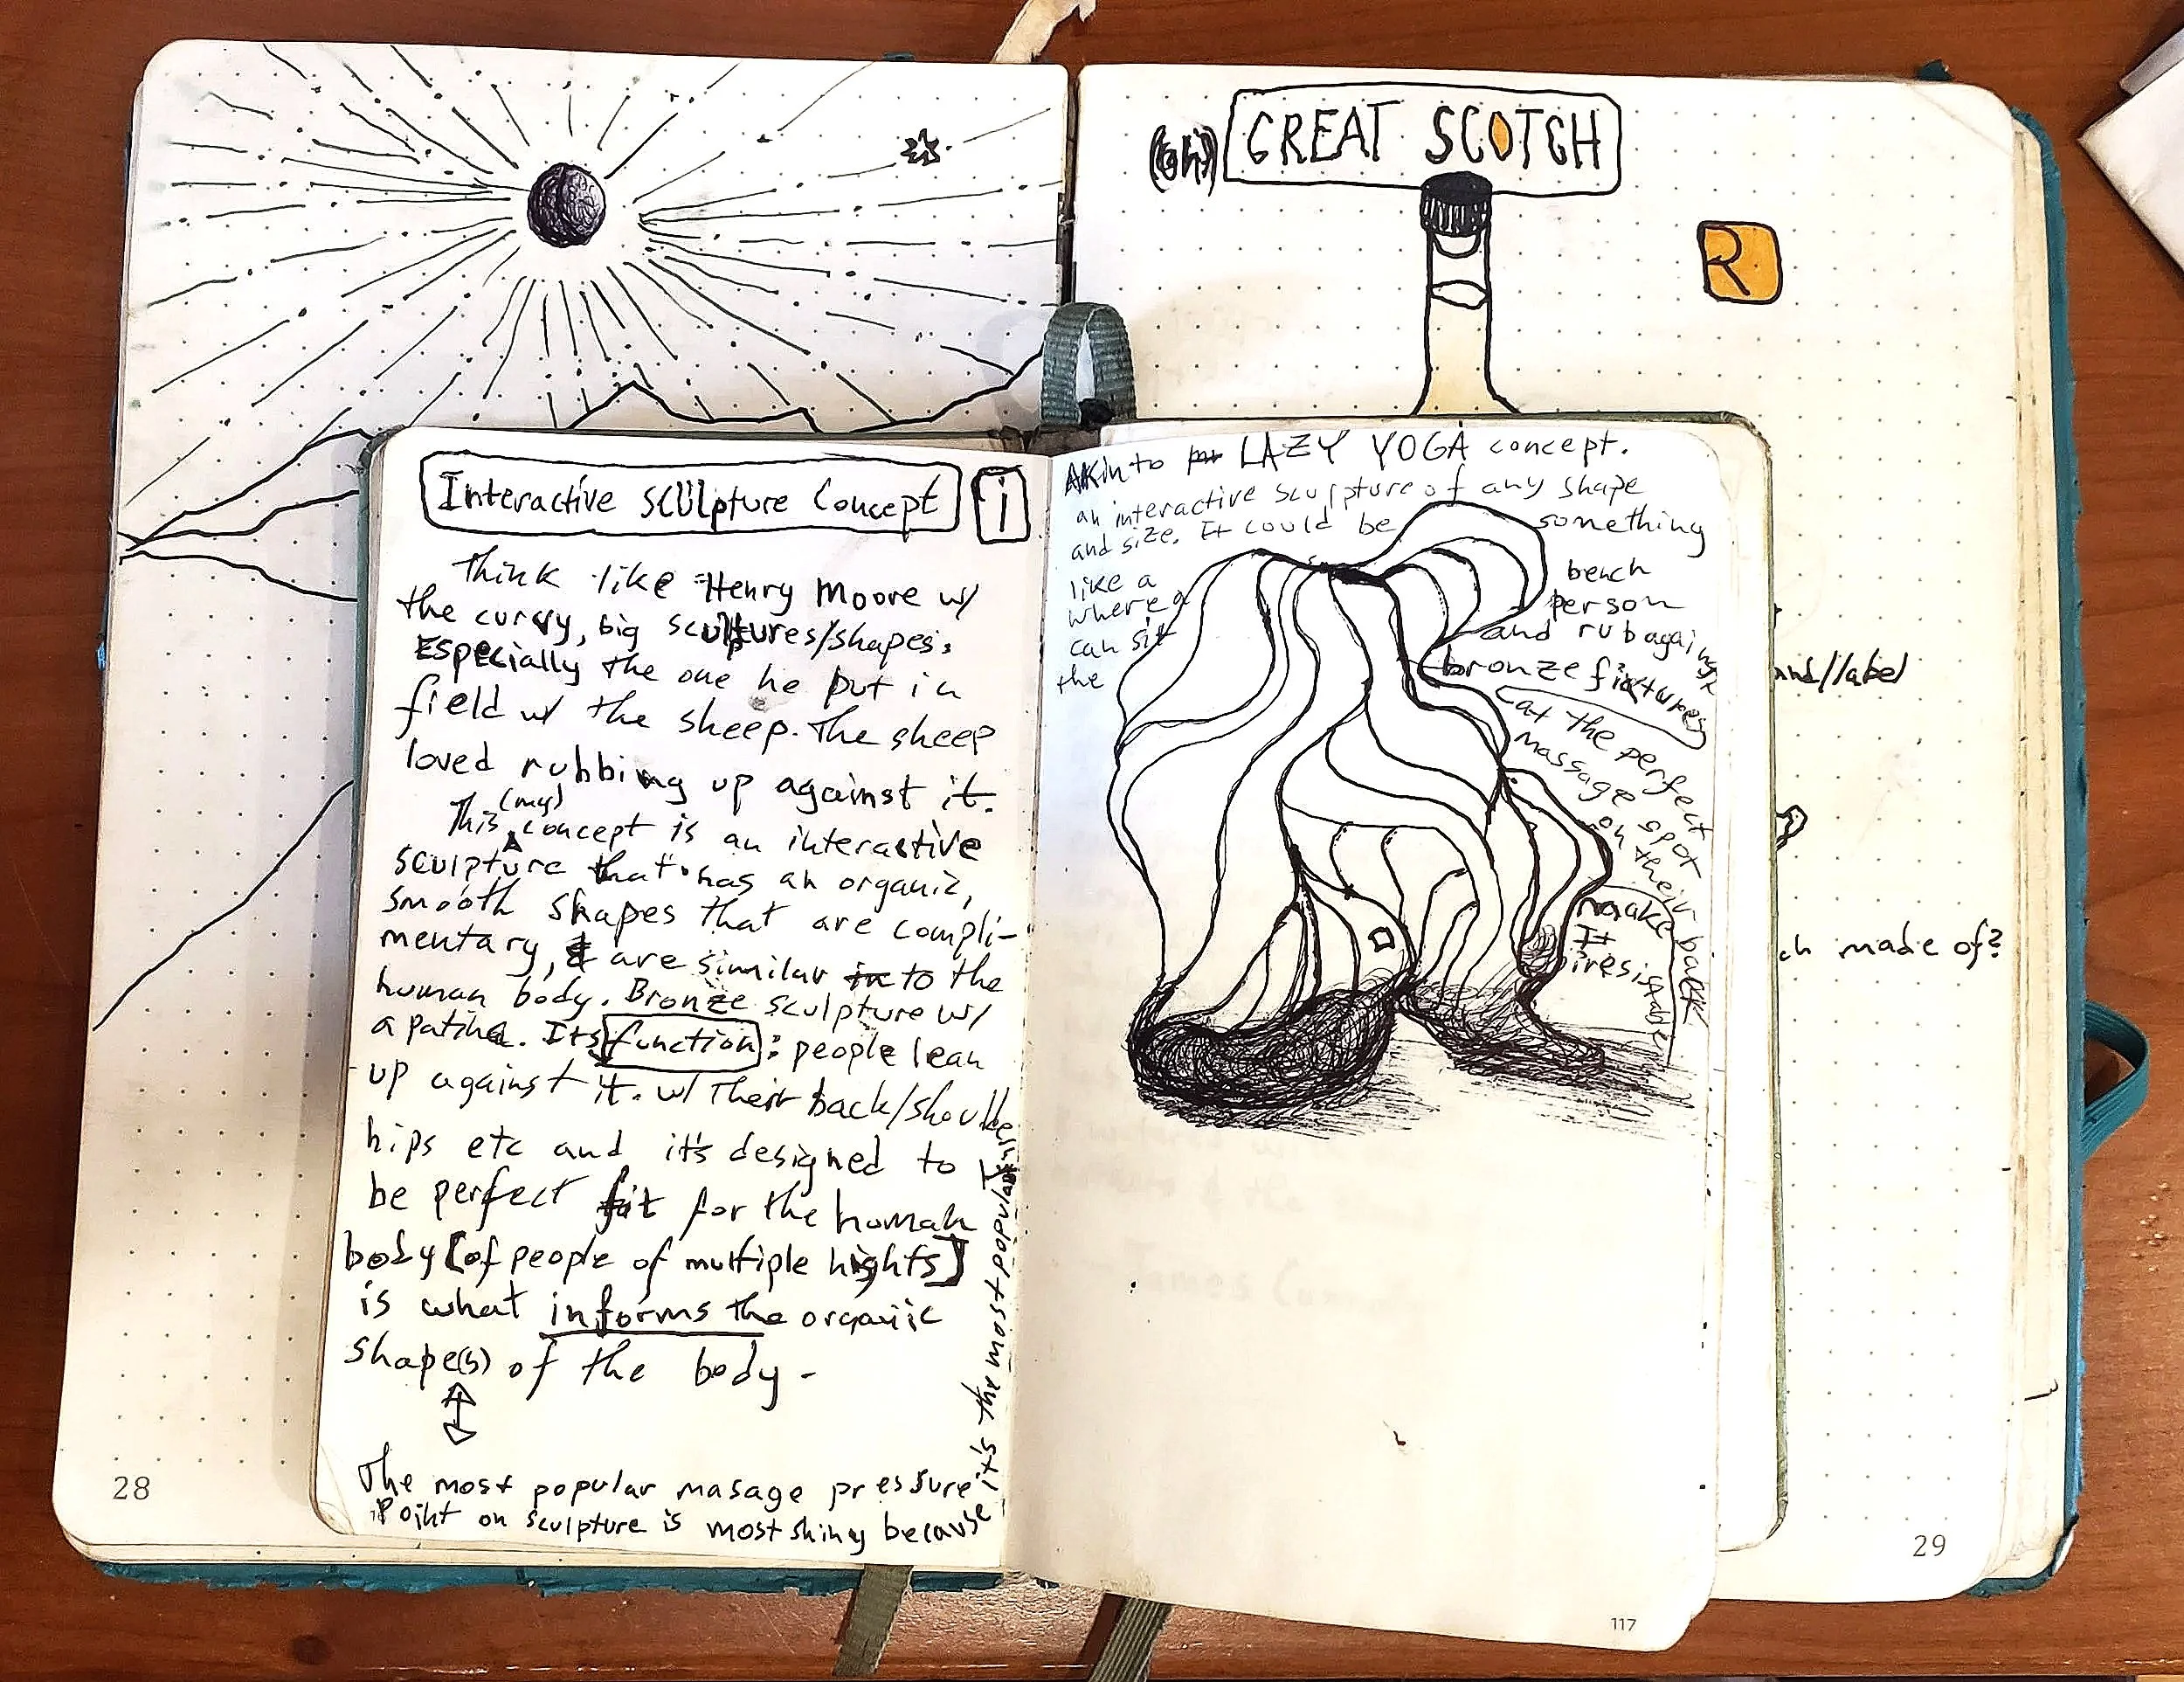 (oh) GREAT SCOTCH
R
and/label
ch made of?
28
29
Interactive SCUlpture Concept
i
Think like Henry Moore w/
the curvy, big scultures/shapes,
Especially the one he put in
field w/ the sheep. The sheep
loved rubbing up against it.
(my)
This concept is an interactive
sculpture that has an organic,
smooth shapes that are compli-
mentary, & are similar in to the
human body. Bronze sculpture w/
a patina. Its function: people lean
up against it. w/ Their back/shoulders
hips etc and it's designed to
be perfect fit for the human
body [of people of multiple hights]
is what informs the organic
shape(s) of the body -
The most popular masage pressure
Point on sculpture is most shiny because
it's the most popular
AKin to LAZY YOGA concept.
an interactive sculpture of any shape
and size. It could be something
like a bench
where a person
can sit and rub against
the bronze fixtures
at the perfect
massage spot
on their back
make
It
iresistable
117